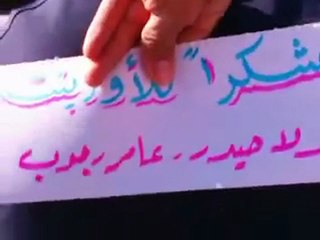 شكراً للأورينت
ولا حيدر. عامر رجوب